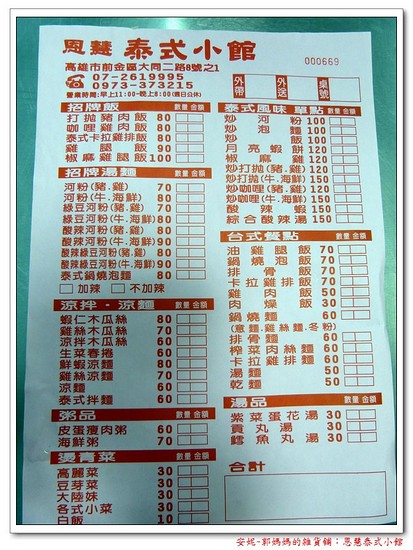 恩慧 泰式小館
高雄市前金區大同二路8號之1
07-2619995
0973-373215
營業時間:早上11:00-晚上8:00(週日公休)
000669
外帶 外送 桌號
招牌飯 數量 金額
打拋豬肉飯 80
咖哩雞肉飯 80
泰式卡拉雞排飯 80
雞腿飯 90
椒麻雞腿飯 100
招牌湯麵 數量 金額
河粉(豬.雞) 70
河粉(牛.海鮮) 80
綠豆河粉(豬.雞) 70
綠豆河粉(牛.海鮮) 80
酸辣河粉(豬.雞) 80
酸辣河粉(牛.海鮮) 90
酸辣綠豆河粉(豬.雞) 80
酸辣綠豆河粉(牛.海鮮) 90
泰式鍋燒泡麵 60
加辣 不加辣
涼拌.涼麵 數量 金額
蝦仁木瓜絲 80
雞絲木瓜絲 80
涼拌木瓜絲 60
生菜春捲 60
鮮蝦涼麵 80
雞絲涼麵 70
涼麵 60
泰式拌麵 60
粥品 數量 金額
皮蛋瘦肉粥 60
海鮮粥 70
燙青菜 數量 金額
高麗菜 30
豆芽菜 30
大陸妹 30
各式小菜 30
白飯 10
泰式風味 單點 數量 金額
炒河粉 100
炒泡麵 100
炒飯 100
月亮蝦餅 120
椒麻雞 120
炒打拋(豬.雞) 120
炒打拋(牛.海鮮) 150
炒咖哩(豬.雞) 120
炒咖哩(牛.海鮮) 150
酸辣蝦 150
綜合酸辣湯 150
台式餐點 數量 金額
油雞腿飯 70
鍋燒泡飯 70
排骨飯 70
卡拉雞排飯 70
雞肉飯 50
肉燥飯 30
鍋燒麵 60
(意麵.雞絲麵.冬粉)
排骨麵 60
榨菜肉絲麵 60
卡拉雞麵 60
湯麵 50
乾麵 50
湯品 數量 金額
紫菜蛋花湯 30
貢丸湯 30
鱈魚丸湯 30
合計
安妮-郭媽媽的雜貨鋪：恩慧泰式小館